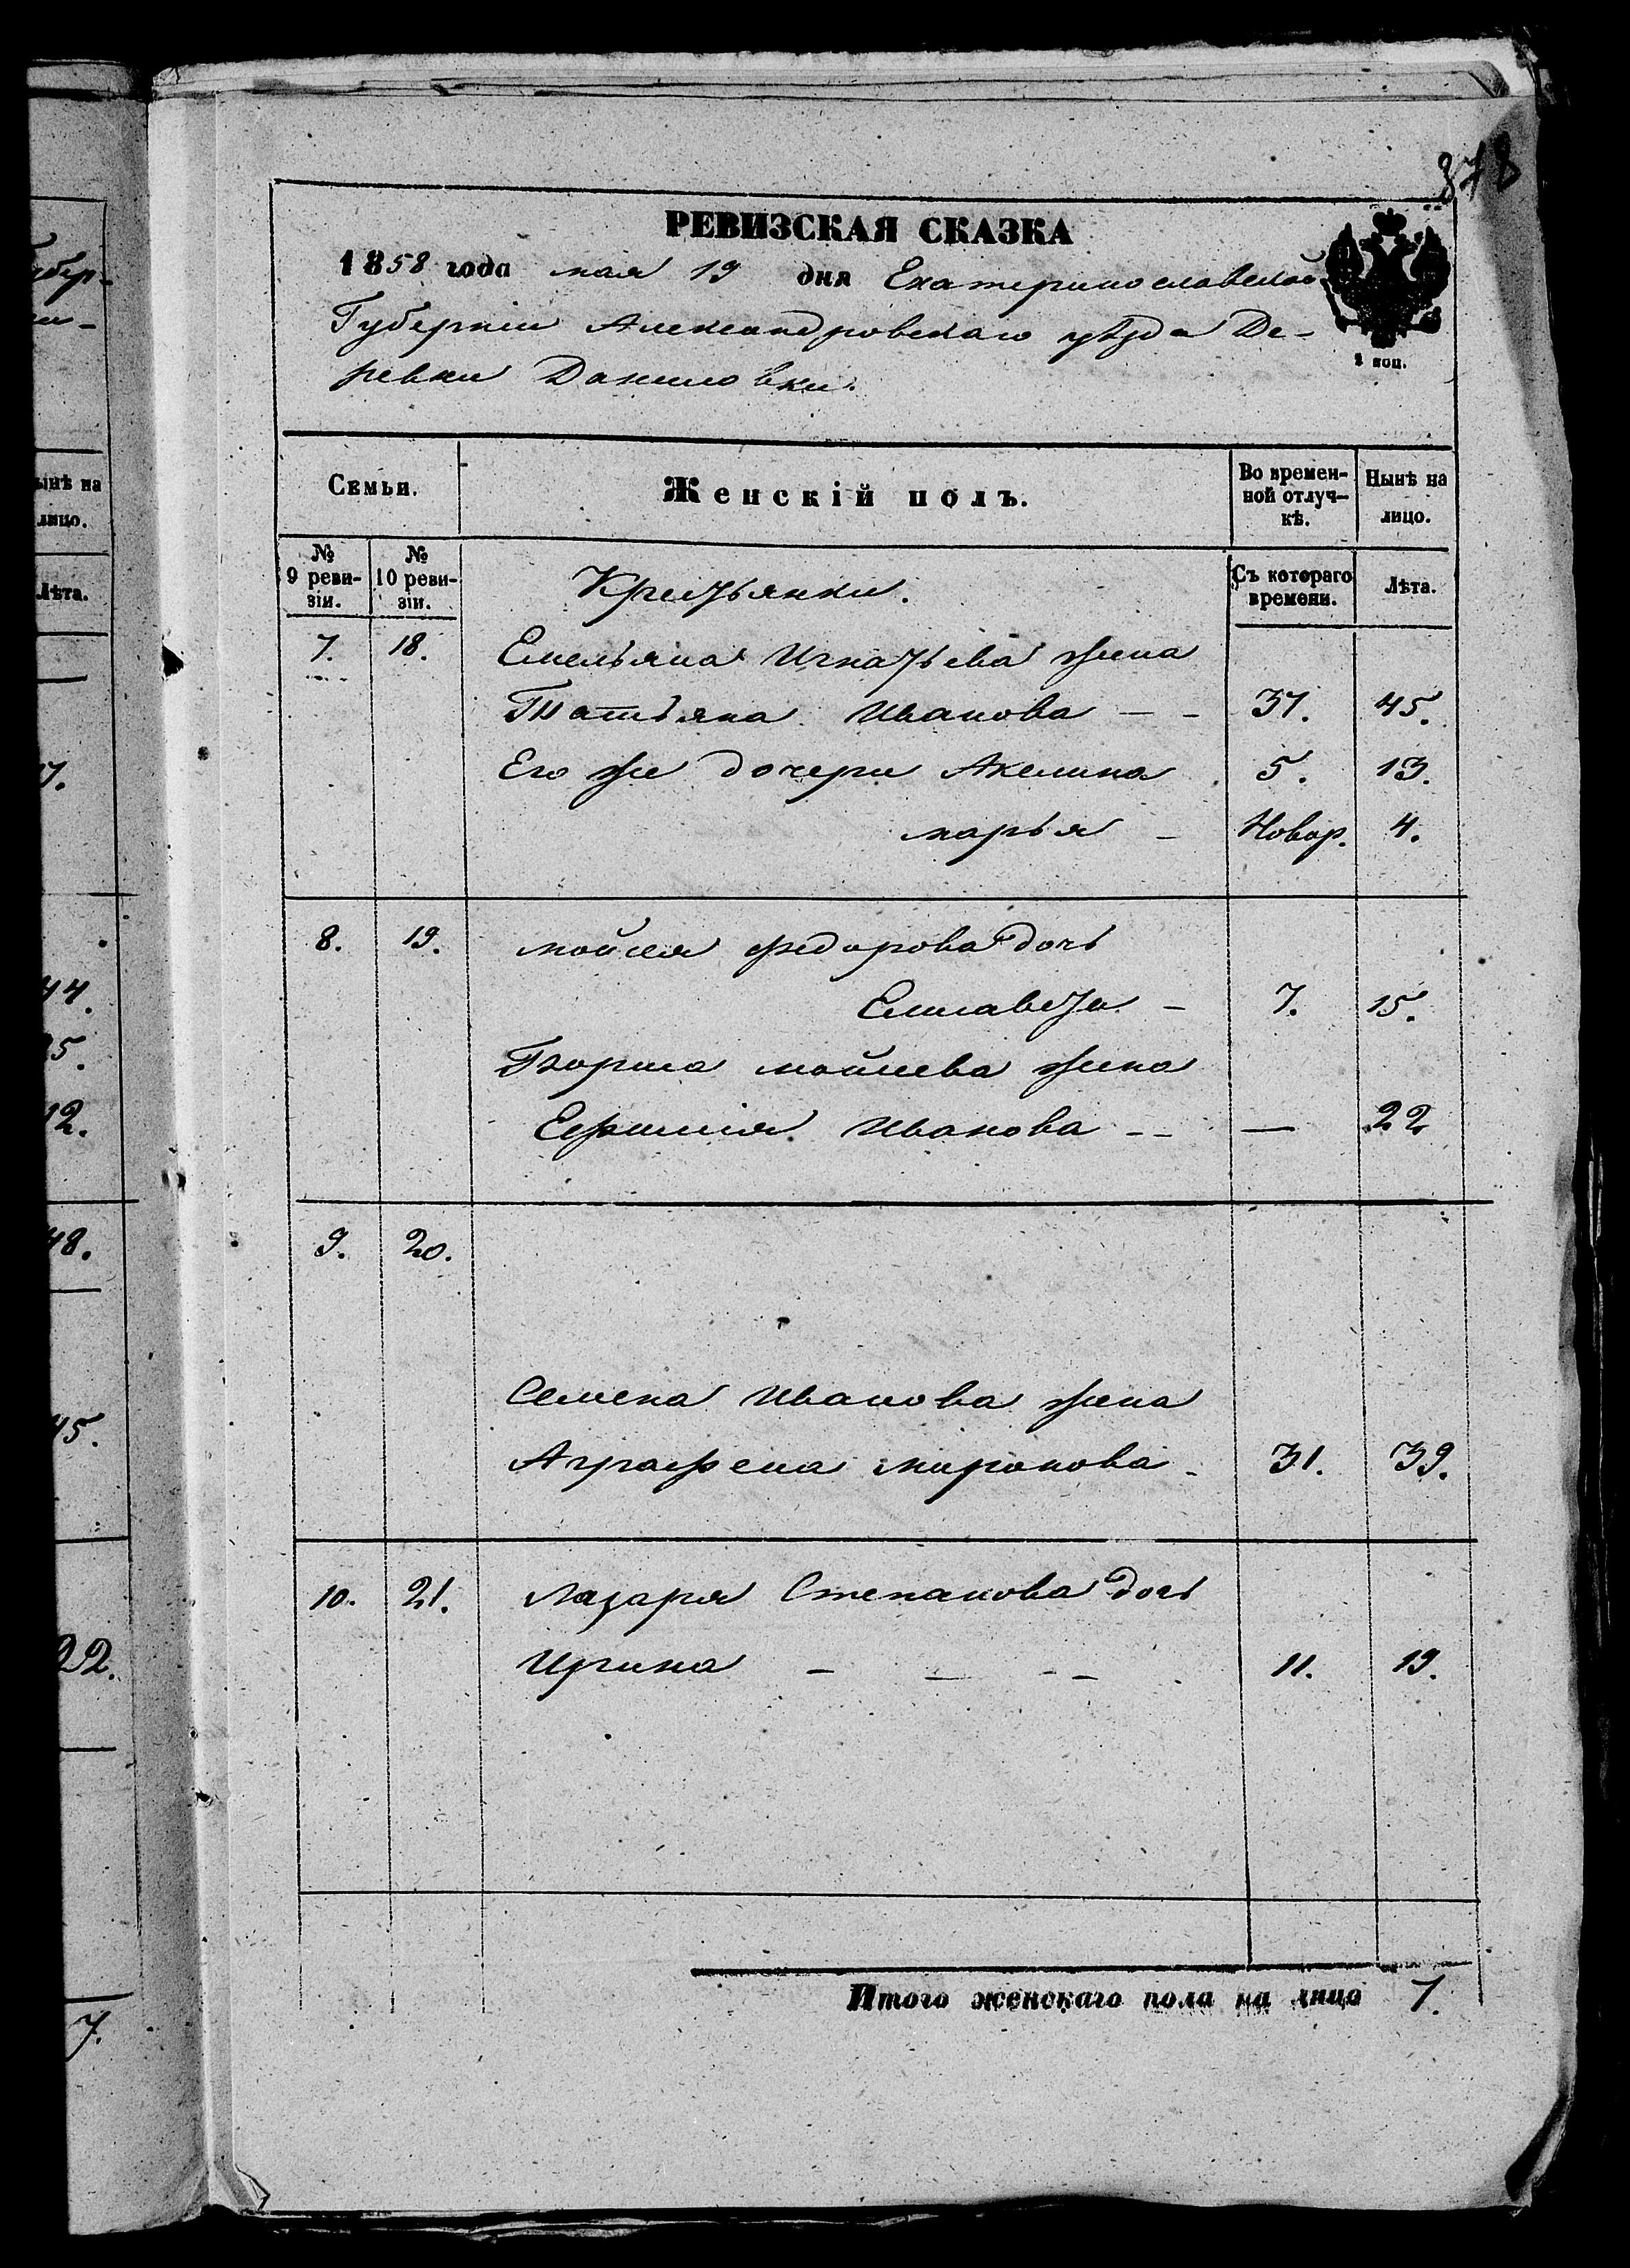 878
РЕВИЗСКАЯ СКАЗКА
1858 года мая 19 дня Екатеринославской
Губерніи Александровскаго уѣзда Де-
ревни Даниловки.
1 коп.
Семьи. Женскій полъ. Во времен-ной отлуч-кѣ. Нынѣ на лицо.
№ 9 реви-зіи. № 10 реви-зіи. Крестьянки. Съ котораго времени. Лѣта.
7. 18. Емельяна Игнатьева жена
Татьяна Иванова — — 37. 45.
Его же дочери Акелина 5. 13.
марья — Новор. 4.
8. 19. мойсея федорова дочь
Елисавета — 7. 15.
Бориса мойсеева жена
Ефимия Иванова — — — 22
9. 20.
Семена Иванова жена
Аграфена миронова — 31. 39.
10. 21. Лазаря Степанова дочь
Ирина — — — — 11. 19.
Итого женскаго пола на лицо 7.
ынѣ на
лицо.
Лѣта.
44.
12.
48.
45.
22.
7.